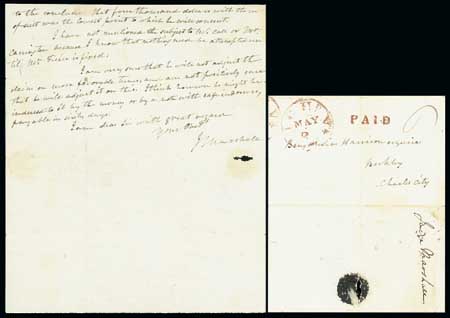 to the conclude that four thousand dollars with the
of debt was the lowest point to which he will consent.
I have not mentioned the subject to Mr. Call or Mr.
Carrington because I know that nothing need be attempted un
til Mr. is fixed.
I am very sure that he will not adjust the
claim on more favorable terms, and am not positively sure
that he will adjust it on this. I think however he might be
induced to it by the money or by a note with endorsers
payable in sixty days.
I am dear Sir with great regard
Your Obedt
J Marshall
MAY
PAID
Benjamin Harrison esquire
Berkley
Charles City
Judge Marshall